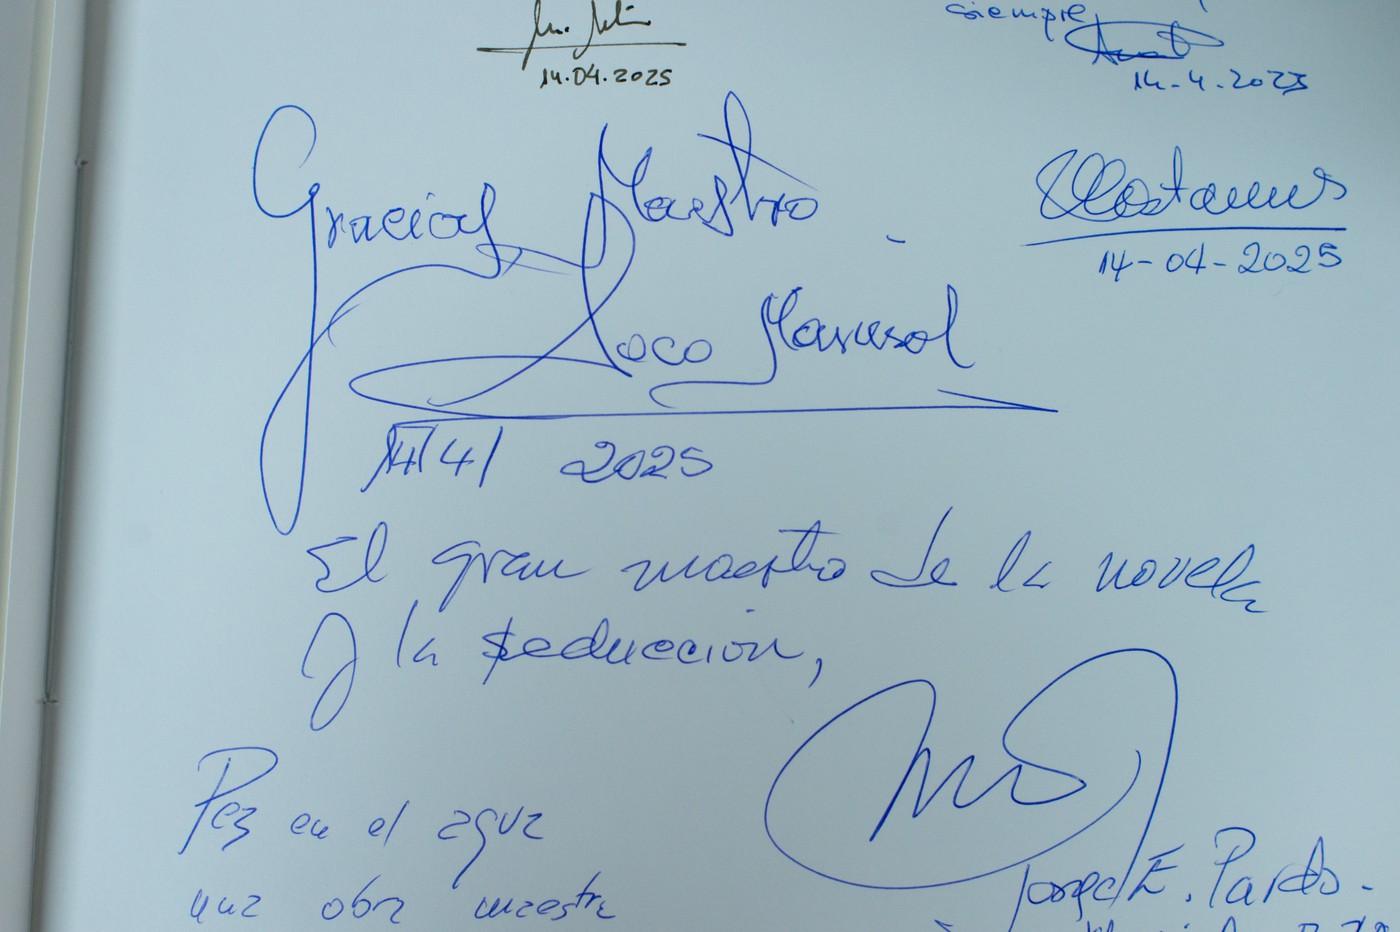 siempre
14.04.2025
14-4-2025
Gracias Maestro
14-04-2025
Loco Marusol
14/4/ 2025
El gran maestro de la novela
y la seducción,
Pez en el agua
una obra maestra
Jorge E. Pardo.